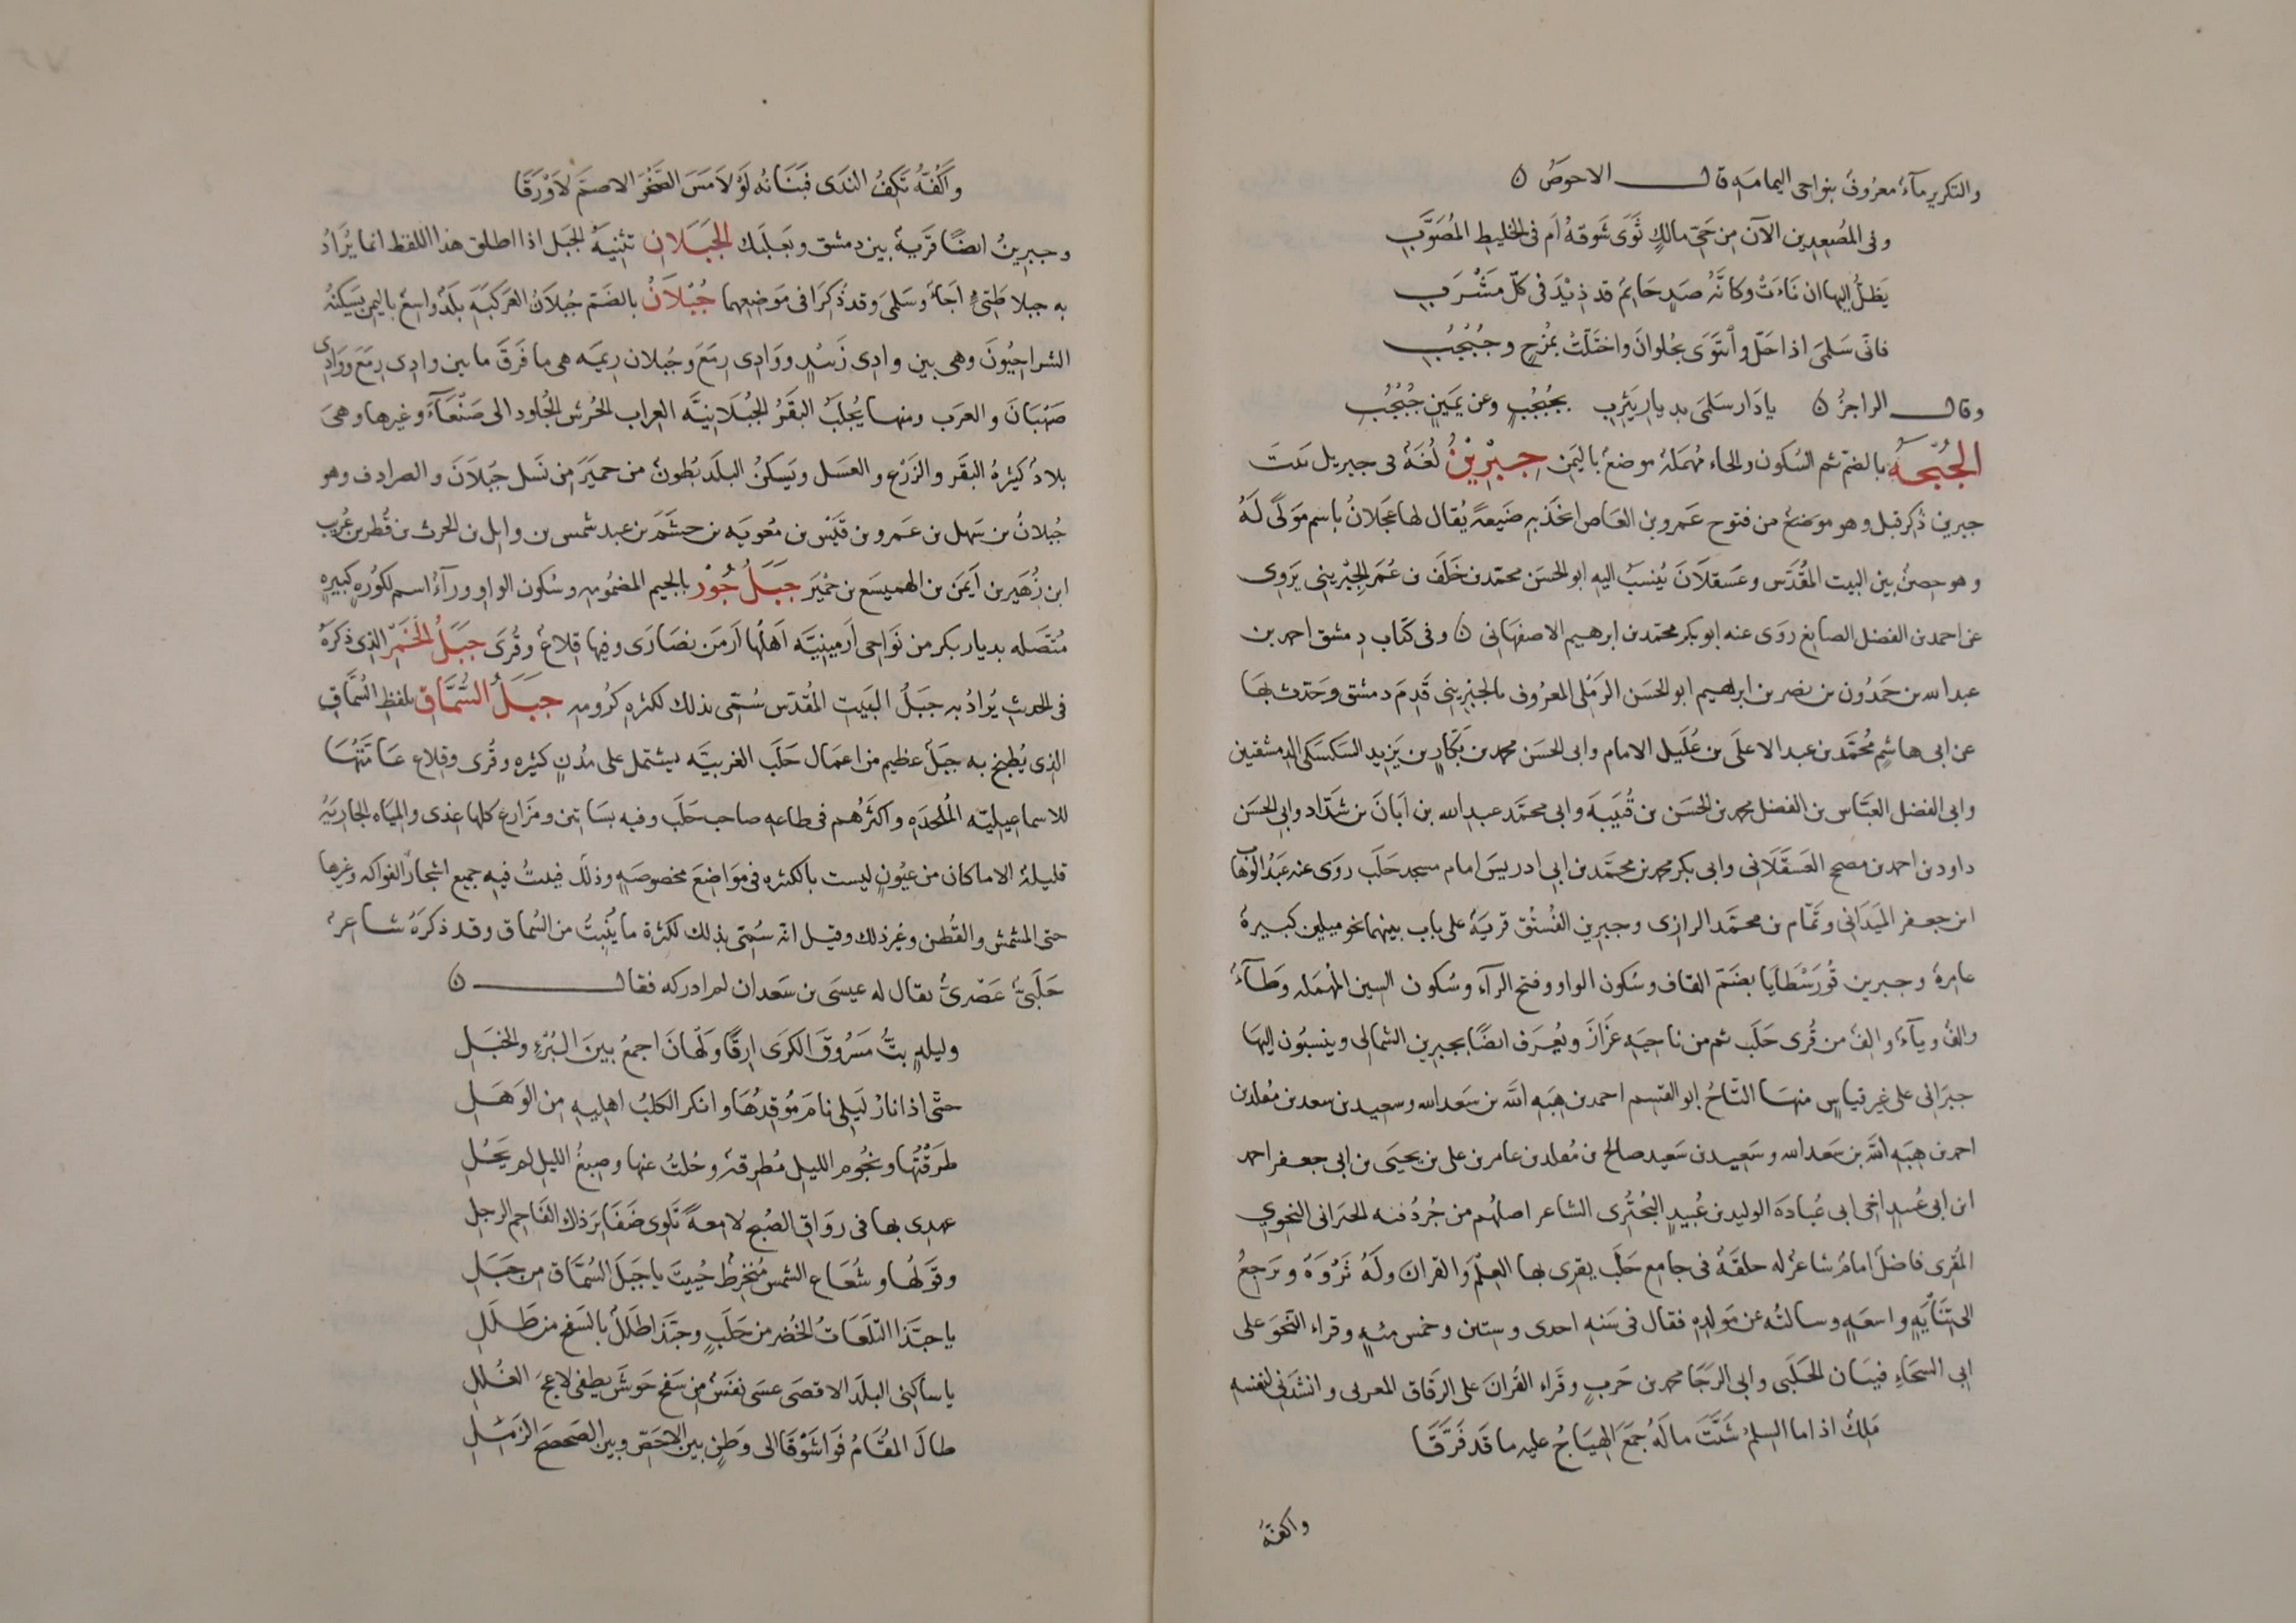 والتكرير مآءٌ معروفٌ بنواحى اليمامَهِ قال الاحوصُ ن
وفى المُصْعِدِين الآن مِن حَيّ مالكٍ ثَوَى شَوقهُ اَم فى الخليطِ المُصَوَّبِ
يَظلُّ اليها ان نَاءَتْ وكانَّهُ صَدٍ حَايمٌ قد ذِيْدَ فى كلّ مَشْرَبِ
فانّى سَلمىَ اذا حَلّ وٱنتَوَى بحُلوانَ واختَلّتْ بمُزجٍ وجُبْجُبِ
وقال الراجزُ ن يا دَار سَلمىَ بديارِ يَثرِبِ بجُبْجُبٍ وعن يَمَينِ جُبْجُبِ
الجُبْحَهُ بالضمّ ثم السُكون والحاء مُهمَلة موضعٌ باليَمَنِ جِبْرِيْنُ لُغَةٌ فى جبريل بَيت
جبرين ذُكر قبل وهو موَضعٌ من فتوح عَمرو بن العَاص اتخَذ بهِ ضَيعةً يُقال لها عَجلانُ باسمِ مَوْلىً لَهُ
وهو حِصنٌ بين البيت المُقَدّس وعَسقلاَنَ يُنسَبُ اليهِ ابو الحسَن محمّد بن خَلَف بن عُمَر الجِبْريني يَروى
عن احمد بن الفضل الصايغ رَوَى عنه ابو بكر محمّد بن ابرهيم الاصفهانى ن وفى كتاب دِمشق احمد بن
عبد الله بن حَمدُون بن نصر بن ابرهيم ابو الحسَن الرَملى المعرُوف بالجِبْرِيني قَدِمَ دمشق وحَدّث بهَا
عن ابى هاشمٍ مُحمَّد بن عبد الاعلىَ بن عُلَيل الامام وابى الحسَن محمد بن بَكّارِ بن يَزيد السَكسَكى الدمشقيين
وابى الفضل العبَّاس بن الفضل محمد بن الحسَن بن قُتيبَة وابى محمَّد عبد الله بن اَبَانَ بن شَدّاد وابى الحَسَن
داود بن احمد بن مصحح العَسقَلاَنى وابى بكر محمد بن محمَّد بن ابى ادريسَ امام مسجد حَلَب روَى عنه عَبدُ الوَهّاب
ابن جعفر المَيَدَانى وتَمّام بن محمَّد الرازى وجبرين الفُسْتُق قريَهٌ على باب بينهما نحو ميلين كبيرةٌ
عامرةٌ وجبرين قُورَسْطَايَا بضَمّ القاف وسُكون الواو وفتح الرآء وسُكون السِين المُهمَله وَطَآءٌ
والفٌ وياءٌ والفٌ من قُرى حَلَب ثم من ناحيَهِ عَزَازَ ويُعرَف ايضًا بجبرين الشمالى وينسبُون اليهَا
جبرَانى على غير قياسٍ منهَا التّاجُ ابو القسِم احمد بن هِبَهِ اللَّه بن سَعد الله وسعيد بن سعد بن مُقلد بن
احمد بن هِبَهِ اللَّه بن سَعد الله وسَعِيد بن سَعيد صالح بن مُقلد بن عامر بن على بن يحيَى بن ابى جعفر احمد
ابن ابى عُبيدٍ اخى ابى عُبادَة الوليد بن عُبيدٍ البُحتُرى الشاعر اصلهُم من جُردُفنه الجبرانى النحوي
المُقرى فاضلٌ امامٌ شاعرٌ له حلقَةٌ فى جامع حَلَب يقرى بها العِلمَ والقرانَ ولَهُ ثَرْوَةٌ وَيرجِعُ
الى تنَايَهٍ واسعَهٍ وسالتُه عن مَولدِهِ فقال فى سَنهِ احدى وستين وخمس مئهٍ وقراء النحوَ على
ابى السخَاءِ فيتان الحَلَبى وابى الرجَا محمد بن حَربٍ وقَراء القُرانَ على الدقاق المعربى وانشَدَنى لنفسهِ
مَلِكٌ اذا ما السِلمُ شَتَّتَ مالَهُ جَمَعَ الهيَاجُ عليهِ ما قَد فَرَّقَا
واكفّهُ
واَكُفُّهُ تَكِفُ الندَى فبَنَانهُ لَوْ لاَمَسَ الصّخْرَ الاصمَّ لاَوْرَقَا
وجبرينُ ايضًا قَريةٌ بين دمشق وبَعلبَك الجَبَلاَنِ تثنيَةُ الجَبَل اذا اطلق هذا اللفظ انما يُرَادُ
به جبلا طَيّئٍ اَجَاءٌ وسَلمىَ وقد ذُكِرَا فى مَوضِعِهما جُبْلاَنُ بالضَمّ جُبلاَنُ العَركبَهِ بَلَدٌ واسعٌ باليمن يَسكنُهُ
الشراحِيُّونَ وهى بين وادى زَبِيْدٍ ووَادِى رِمَعَ وجُبلان رِيمَه هى ما فَرَقَ ما بين وادِى رِمَعَ ووَادِى
صَهْبَانَ والعرَب ومنهَا يُجلَبُ البقَرُ الجُبْلاَنيَّه العِراب الحُرش الجُلود الى صَنْعَآءَ وغيرها وهىَ
بلادٌ كثيرةُ البقَر والزَرْعِ والعسَل ويَسكنُ البلَد بُطونٌ من حميَرَ من نَسل جُبلاَنَ والصرادِف وهو
جُبلانُ بن سَهل بن عَمرو بن قَيْس بن مُعويَه بن جشَمَ بن عبد شمس بن وايل بن الحرث بن قَطن بن عُريب
ابن زُهَير بن اَيمَن بن الهميسَع بن حْميَرَ جَبَلُ جُوْر بالجيم المضمُومِه وسُكون الواو ورآءٌ اسم لكُورَهٍ كبيرهٍ
مُتّصَله بديار بكر من نَواحى اَرمِينِيَّه اَهلُها اَرمَن نصَارَى وفيها قِلاعٌ وقُرىَ جَبَلُ الخَمَرِ الذى ذكرَهُ
فى الحديثِ يُرادُ بهِ جبَلُ البَيتِ المُقدّس سُمّى بذلك لكثرهِ كرُومِهِ جَبَلُ السُّمَّاق بلفظِ السُّمَّاقِ
الذى يُطبخ به جبَلٌ عظيم من اعمَال حَلَب الغربيَّه يشتمل على مُدُنٍ كثيرهٍ وقُرى وقِلاعٍ عَامَّتهَا
للاسماعيليّه المُلحَدِه واكثَرُهُم فى طاعهِ صاحب حَلَب وفيه بسَاتين ومَزَارع كلها عذى والميَاه الجاريَهُ
قليلةُ الا ماكان من عُيُونٍ ليست بالكثرهِ فى مَوَاضعَ مخصوصَهٍ وذلك فيبتُ فيهِ جميع اشجارُ الفواكه وغيرها
حتى المشمش والقُطن وغير ذلك وقيل انّه سُمّى بذلك لكثرة ما يُنبِتُ من السُماق وقد ذكرَهُ شاعرٌ
حَلَبىٌّ عَصرىٌّ يقال له عيسَى بن سَعدان لم ادركه فقال ن
وليلهٍ بتُّ مَسْرُوقَ الكَرَى اَرِقًا وَلْهانَ اجمعُ بينَ البُرْءِ والخبَلِ
حتّى اذا نارُ لَيلى نامَ مُوقِدُهَا وانكر الكلبُ اهليهِ مِن الوَهَلِ
طرَقْتُها ونجُوم الليل مُطرِقةٌ وحُلتُ عنها وصِبغُ الليل لم يَحُلِ
عهدِى بها فى رِوَاقِ الصُبح لامعةً تَلوِى ضَفَايرَ ذاك الفَاحِم الرجلِ
وقَوَلهَا وشُعَاع الشمس مُنخرطٌ حُييتَ يا جَبَلَ السُمَّاق مِن جَبَلِ
يا حبّذا التلَعَاتُ الخُضر من حَلَبٍ وحبَّذا طَلَلٌ بالسَفح من طَلَلِ
يا ساكِنى البلَد الاقصَى عسَى نفَسٌ مِن سَفحِ جَوشَن يطفى لاعجَ الغُلَلِ
طالَ المقَامُ فَواشَوْقَا الى وَطَنٍ بين الاحَصّ وبين الصَحصحِ الرَمِلِ